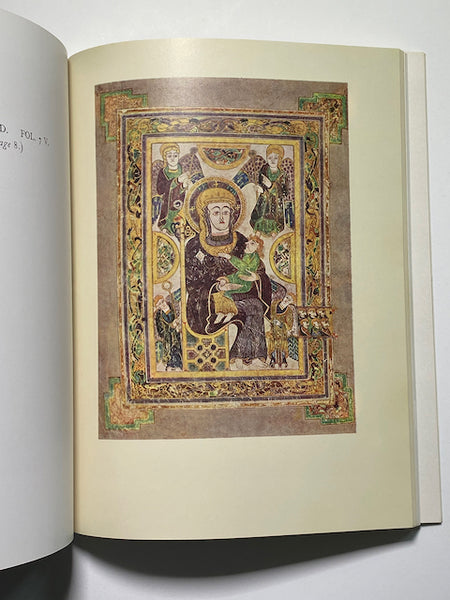 D. FOL. 7 V.
age 8.)